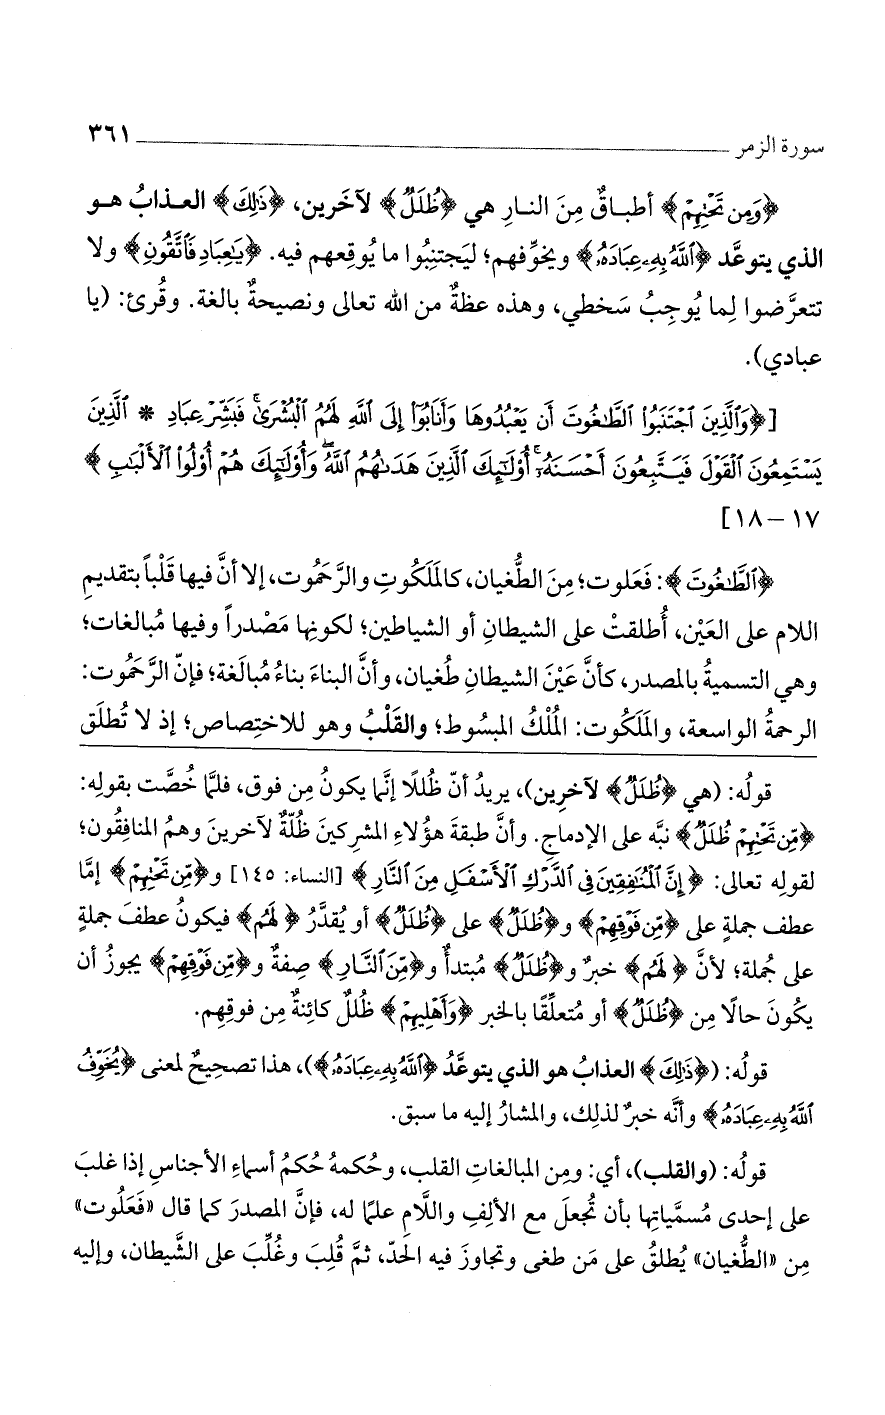 سورة الزمر ٣٦١
﴿وَمِن تَحْتِهِمْ﴾ أطبـاقٌ مِنَ النـارِ هي ﴿ظُلَلٌ﴾ لآخَرين، ﴿ذَٰلِكَ﴾ العـذابُ هـو
الذي يتوعَّد ﴿ٱللَّهُ بِهِۦ عِبَادَهُۥ﴾ ويخوِّفهم؛ ليَجتنِبُوا ما يُوقِعهم فيه. ﴿يَٰعِبَادِ فَٱتَّقُونِ﴾ ولا
تتعرَّضوا لِما يُوجِبُ سَخطي، وهذه عظةٌ من الله تعالى ونصيحةٌ بالغة. وقُرئ: (يا
عبادي).
[﴿وَٱلَّذِينَ ٱجْتَنَبُوا۟ ٱلطَّٰغُوتَ أَن يَعْبُدُوهَا وَأَنَابُوٓا۟ إِلَى ٱللَّهِ لَهُمُ ٱلْبُشْرَىٰ ۚ فَبَشِّرْ عِبَادِ * ٱلَّذِينَ
يَسْتَمِعُونَ ٱلْقَوْلَ فَيَتَّبِعُونَ أَحْسَنَهُۥٓ ۚ أُو۟لَٰٓئِكَ ٱلَّذِينَ هَدَىٰهُمُ ٱللَّهُ ۖ وَأُو۟لَٰٓئِكَ هُمْ أُو۟لُوا۟ ٱلْأَلْبَٰبِ﴾
١٧ – ١٨]
﴿ٱلطَّٰغُوتَ﴾: فَعَلوت؛ مِنَ الطُّغيان، كالمَلَكُوتِ والرَّحَمُوت، إلا أنَّ فيها قَلْباً بتقديمِ
اللام على العَيْن، أُطلقتْ على الشيطانِ أو الشياطين؛ لكونِها مَصْدراً وفيها مُبالغات؛
وهي التسميةُ بالمصدر، كأنَّ عَيْنَ الشيطانِ طُغيان، وأنَّ البناءَ بناءُ مُبالَغة؛ فإنّ الرَّحَمُوت:
الرحمةُ الواسعة، والمَلَكُوت: المُلْكُ المبسُوط؛ والقَلْبُ وهو للاختِصاص؛ إذ لا تُطلَق
قولُه: (هي ﴿ظُلَلٌ﴾ لآخرِين)، يريدُ أنّ ظُللًا إنَّما يكونُ مِن فوق، فلمَّا خُصَّت بقولِه:
﴿مِّن تَحْتِهِمْ ظُلَلٌ﴾ نبَّه على الإدماج. وأنَّ طبقةَ هؤلاءِ المشرِكينَ ظُلّةٌ لآخرينَ وهمُ المنافِقون؛
لقولِه تعالى: ﴿إِنَّ ٱلْمُنَٰفِقِينَ فِي ٱلدَّرْكِ ٱلْأَسْفَلِ مِنَ ٱلنَّارِ﴾ [النساء: ١٤٥] و﴿مِّن تَحْتِهِمْ﴾ إمَّا
عطف جملةٍ على ﴿مِّن فَوْقِهِمْ﴾ و﴿ظُلَلٌ﴾ على ﴿ظُلَلٌ﴾ أو يُقدَّرُ ﴿لَهُم﴾ فيكونُ عطفَ جملةٍ
على جُملة؛ لأنَّ ﴿لَهُم﴾ خبرٌ و﴿ظُلَلٌ﴾ مُبتدأٌ و﴿مِّنَ ٱلنَّارِ﴾ صِفةٌ و﴿مِّن فَوْقِهِمْ﴾ يجوزُ أن
يكُونَ حالًا مِن ﴿ظُلَلٌ﴾ أو مُتعلِّقًا بالخبر ﴿وَأَهْلِيهِمْ﴾ ظُللٌ كائِنةٌ مِن فوقِهِم.
قولُه: (﴿ذَٰلِكَ﴾ العذابُ هو الذي يتوعَّدُ ﴿ٱللَّهُ بِهِۦ عِبَادَهُۥ﴾)، هذا تصحِيحٌ لمعنى ﴿يُخَوِّفُ
ٱللَّهُ بِهِۦ عِبَادَهُۥ﴾ وأنَّه خبرٌ لذلِك، والمشارُ إليه ما سبق.
قولُه: (والقلب)، أي: ومِن المبالغاتِ القلب، وحُكمهُ حُكمُ أسماءِ الأجناسِ إذا غلبَ
على إحدى مُسمَّياتِها بأن تُجعلَ مع الألِفِ واللَّامِ علمًا له، فإنَّ المصدرَ كما قال «فَعَلُوت»
مِن «الطُّغيان» يُطلقُ على مَن طغى وتجاوزَ فيه الحَدّ، ثمَّ قُلِبَ وغُلِّبَ على الشَّيطان، وإليه